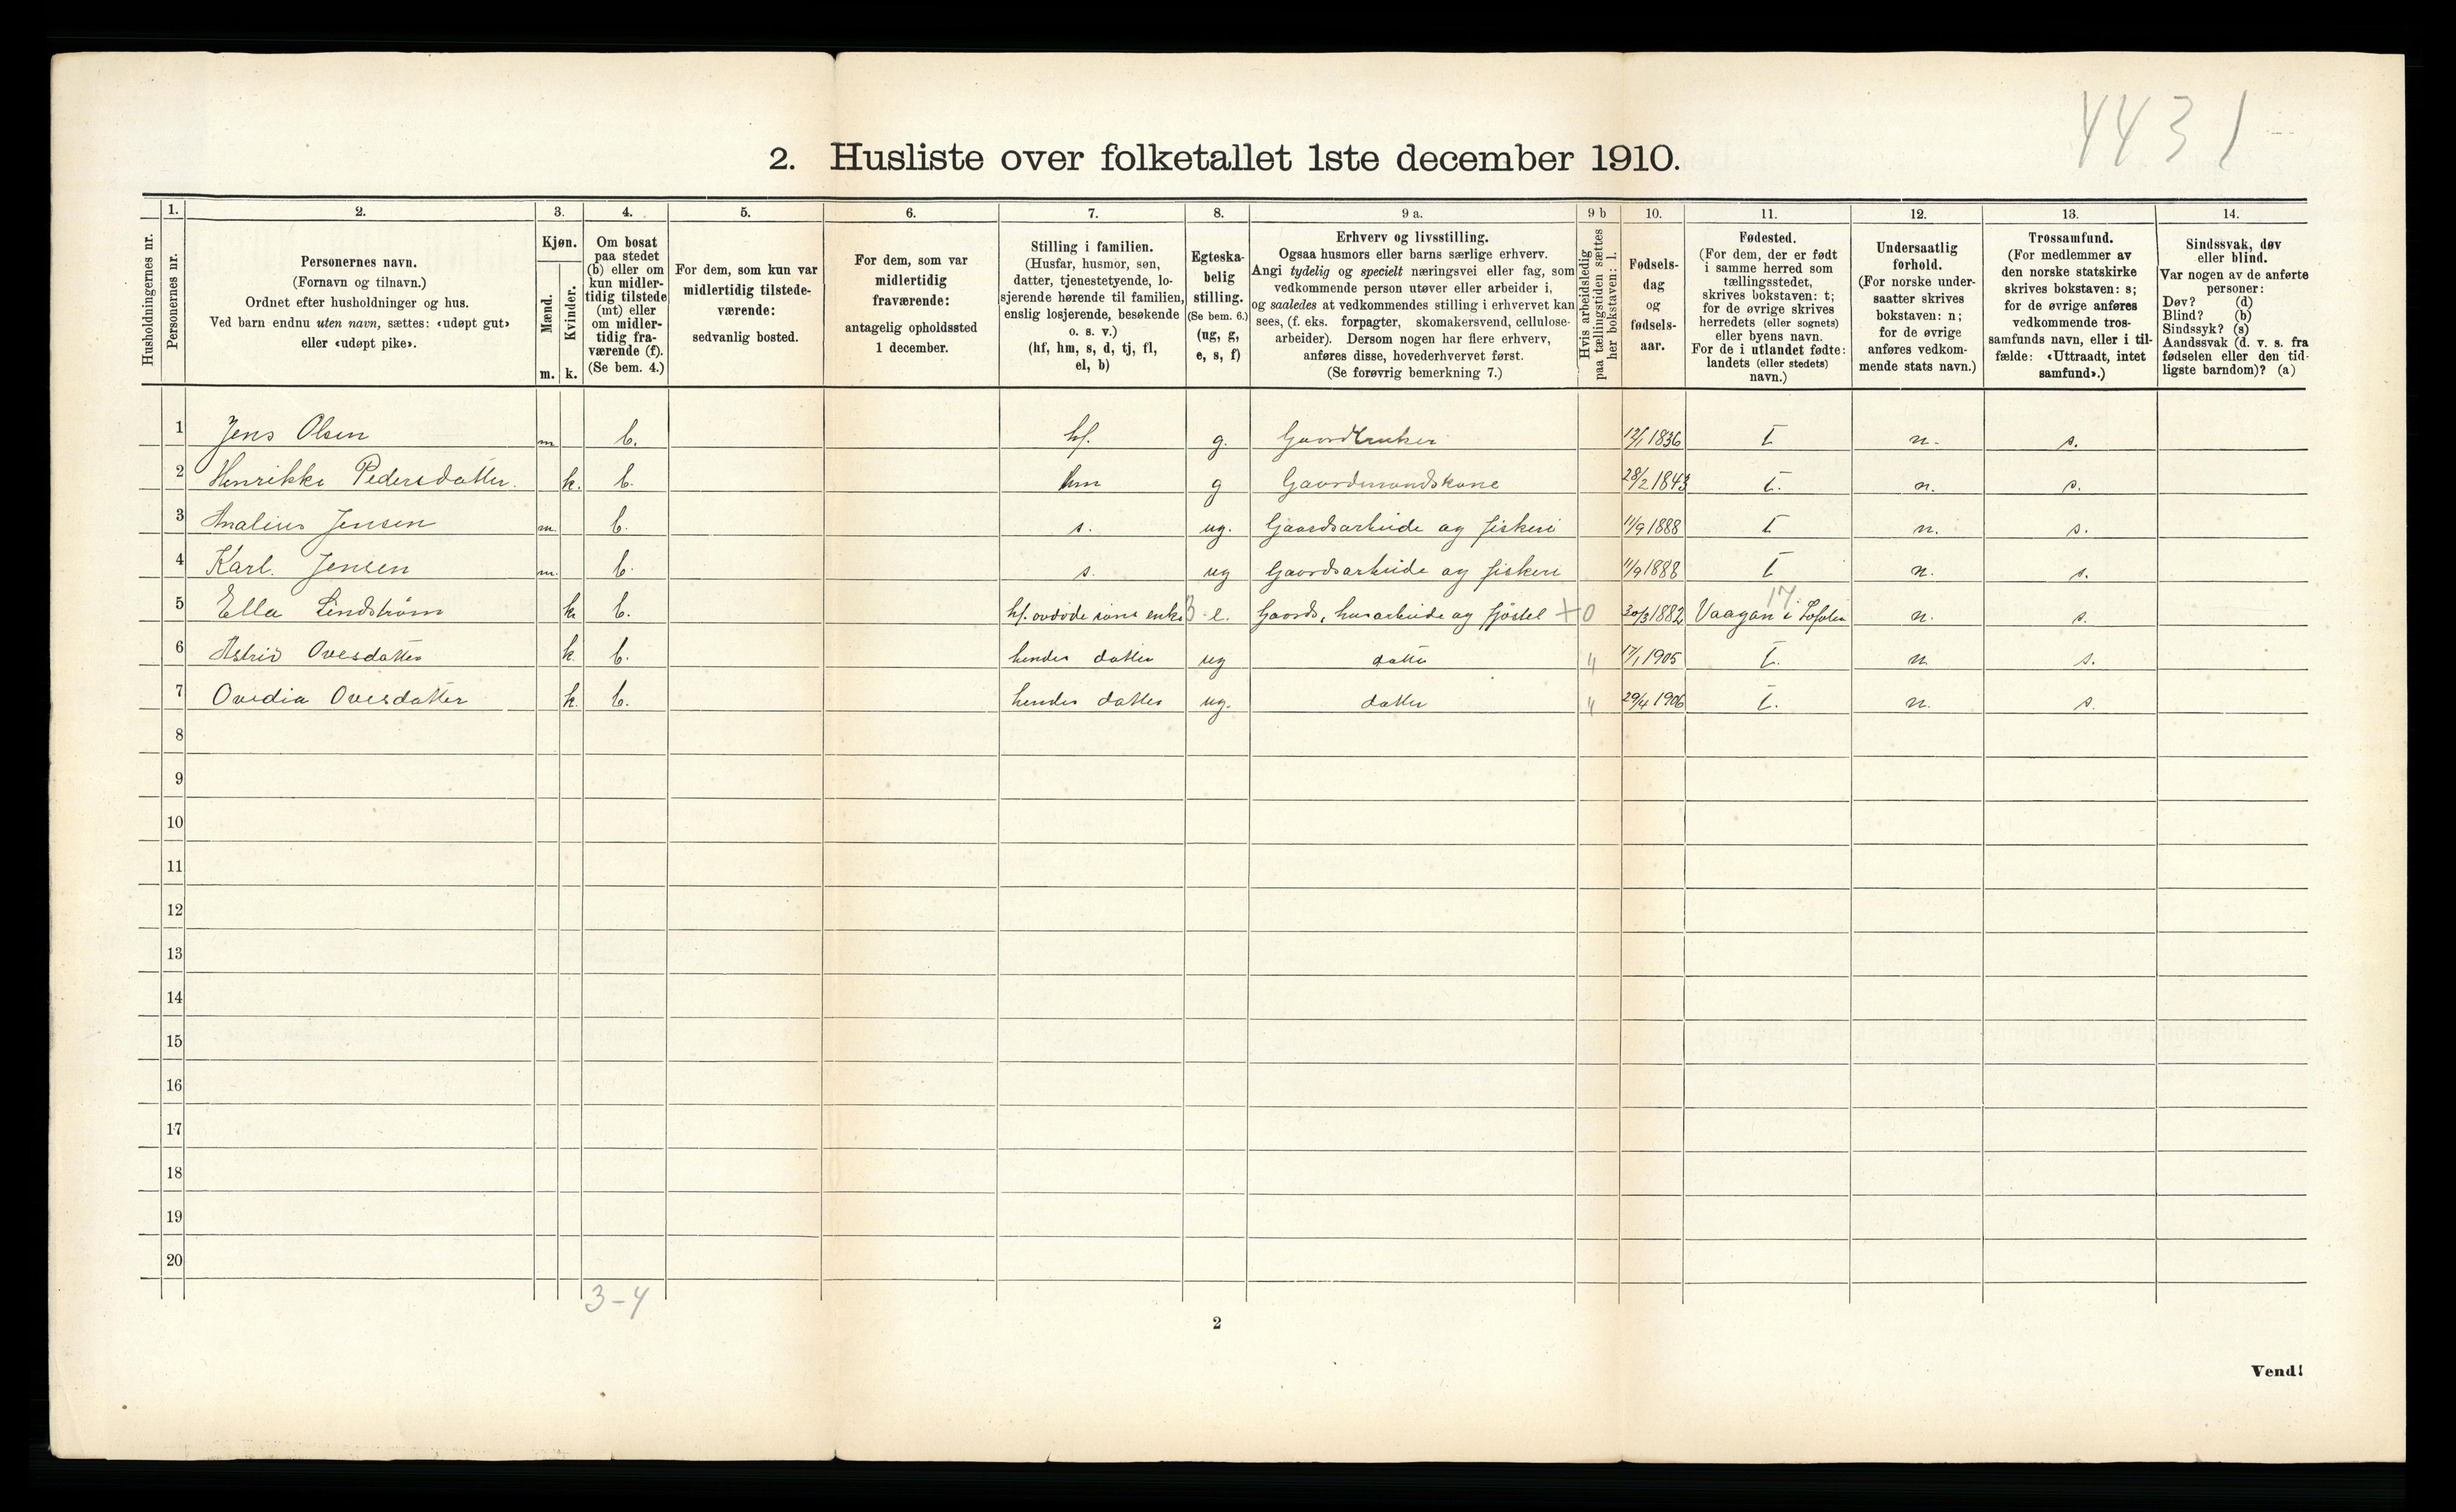 4431
2. Husliste over folketallet 1ste december 1910.
Husholdningernes nr.
1.
Personernes nr.
2.
Personernes navn.
(Fornavn og tilnavn.)
Ordnet efter husholdninger og hus.
Ved barn endnu uten navn, sættes: «udøpt gut»
eller «udøpt pike».
3.
Kjøn.
Mænd.
Kvinder.
m. k.
4.
Om bosat
paa stedet
(b) eller om
kun midler-
tidig tilstede
(mt) eller
om midler-
tidig fra-
værende (f).
(Se bem. 4.)
5.
For dem, som kun var
midlertidig tilstede-
værende:
sedvanlig bosted.
6.
For dem, som var
midlertidig
fraværende:
antagelig opholdssted
1 december.
7.
Stilling i familien.
(Husfar, husmor, søn,
datter, tjenestetyende, lo-
sjerende hørende til familien,
enslig losjerende, besøkende
o. s. v.)
(hf, hm, s, d, tj, fl,
el, b)
8.
Egteska-
belig
stilling.
(Se bem. 6.)
(ug, g,
e, s, f)
9 a.
Erhverv og livsstilling.
Ogsaa husmors eller barns særlige erhverv.
Angi tydelig og specielt næringsvei eller fag, som
vedkommende person utøver eller arbeider i,
og saaledes at vedkommendes stilling i erhvervet kan
sees, (f. eks. forpagter, skomakersvend, cellulose-
arbeider). Dersom nogen har flere erhverv,
anføres disse, hovederhvervet først.
(Se forøvrig bemerkning 7.)
9 b
Hvis arbeidsledig
paa tællingstiden sættes
her bokstaven: l.
10.
Fødsels-
dag
og
fødsels-
aar.
11.
Fødested.
(For dem, der er født
i samme herred som
tællingsstedet,
skrives bokstaven: t;
for de øvrige skrives
herredets (eller sognets)
eller byens navn.
For de i utlandet fødte:
landets (eller stedets)
navn.)
12.
Undersaatlig
forhold.
(For norske under-
saatter skrives
bokstaven: n;
for de øvrige
anføres vedkom-
mende stats navn.)
13.
Trossamfund.
(For medlemmer av
den norske statskirke
skrives bokstaven: s;
for de øvrige anføres
vedkommende tros-
samfunds navn, eller i til-
fælde: «Uttraadt, intet
samfund».)
14.
Sindssvak, døv
eller blind.
Var nogen av de anførte
personer:
Døv? (d)
Blind? (b)
Sindssyk? (s)
Aandssvak (d. v. s. fra
fødselen eller den tid-
ligste barndom)? (a)
1 Jens Olsen m. b. hf. g. Gaardbruker 12/1 1836 t n. s.
2 Henrikke Pedersdatter. k. b. hm g Gaardmandskone 28/2 1843 t. n. s.
3 Analius Jensen m. b. s. ug. Gaardsarbeide og fiskeri 11/9 1888 t n. s.
4 Karl. Jensen m. b. s. ug Gaardsarbeide og fiskeri 11/9 1888 t n. s.
17
5 Ella Lindstrøm k. b. hf. avdøde søns enke 3 e. Gaards, husarbeide og fjøstel + 0 30/3 1882 Vaagan i Lofoten n. s.
6 Astrid Ovesdatter k. b. hendes datter ug datter " 17/1 1905 t. n s.
7 Ovedia Ovesdatter k. b. hendes datter ug. datter " 29/4 1906 t. n. s.
8
9
10
11
12
13
14
15
16
17
18
19
20
3-4
2
Vend!